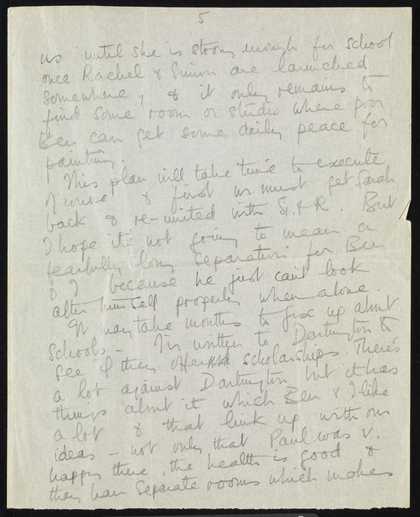 5
us until she is strong enough for school
once Rachel & Simon are launched
somewhere, & it only remains to
find some room or studio where poor
Ben can get some daily peace for
painting.
This plan will take time to execute
& first we must get Sarah
back & re-united with S. & R. But
I hope it's not going to mean a
fearfully long separation for Ben
& I because he just can't look
after himself properly when alone.
It may take months to fix up about
schools – I'm written to Dartington to
see if they offered scholarships. There's
a lot against Dartington but it has
things about it which Ben & I like
a lot & that link up with our
ideas – not only that Paul was v.
happy there, the health is good &
they have separate rooms which makes